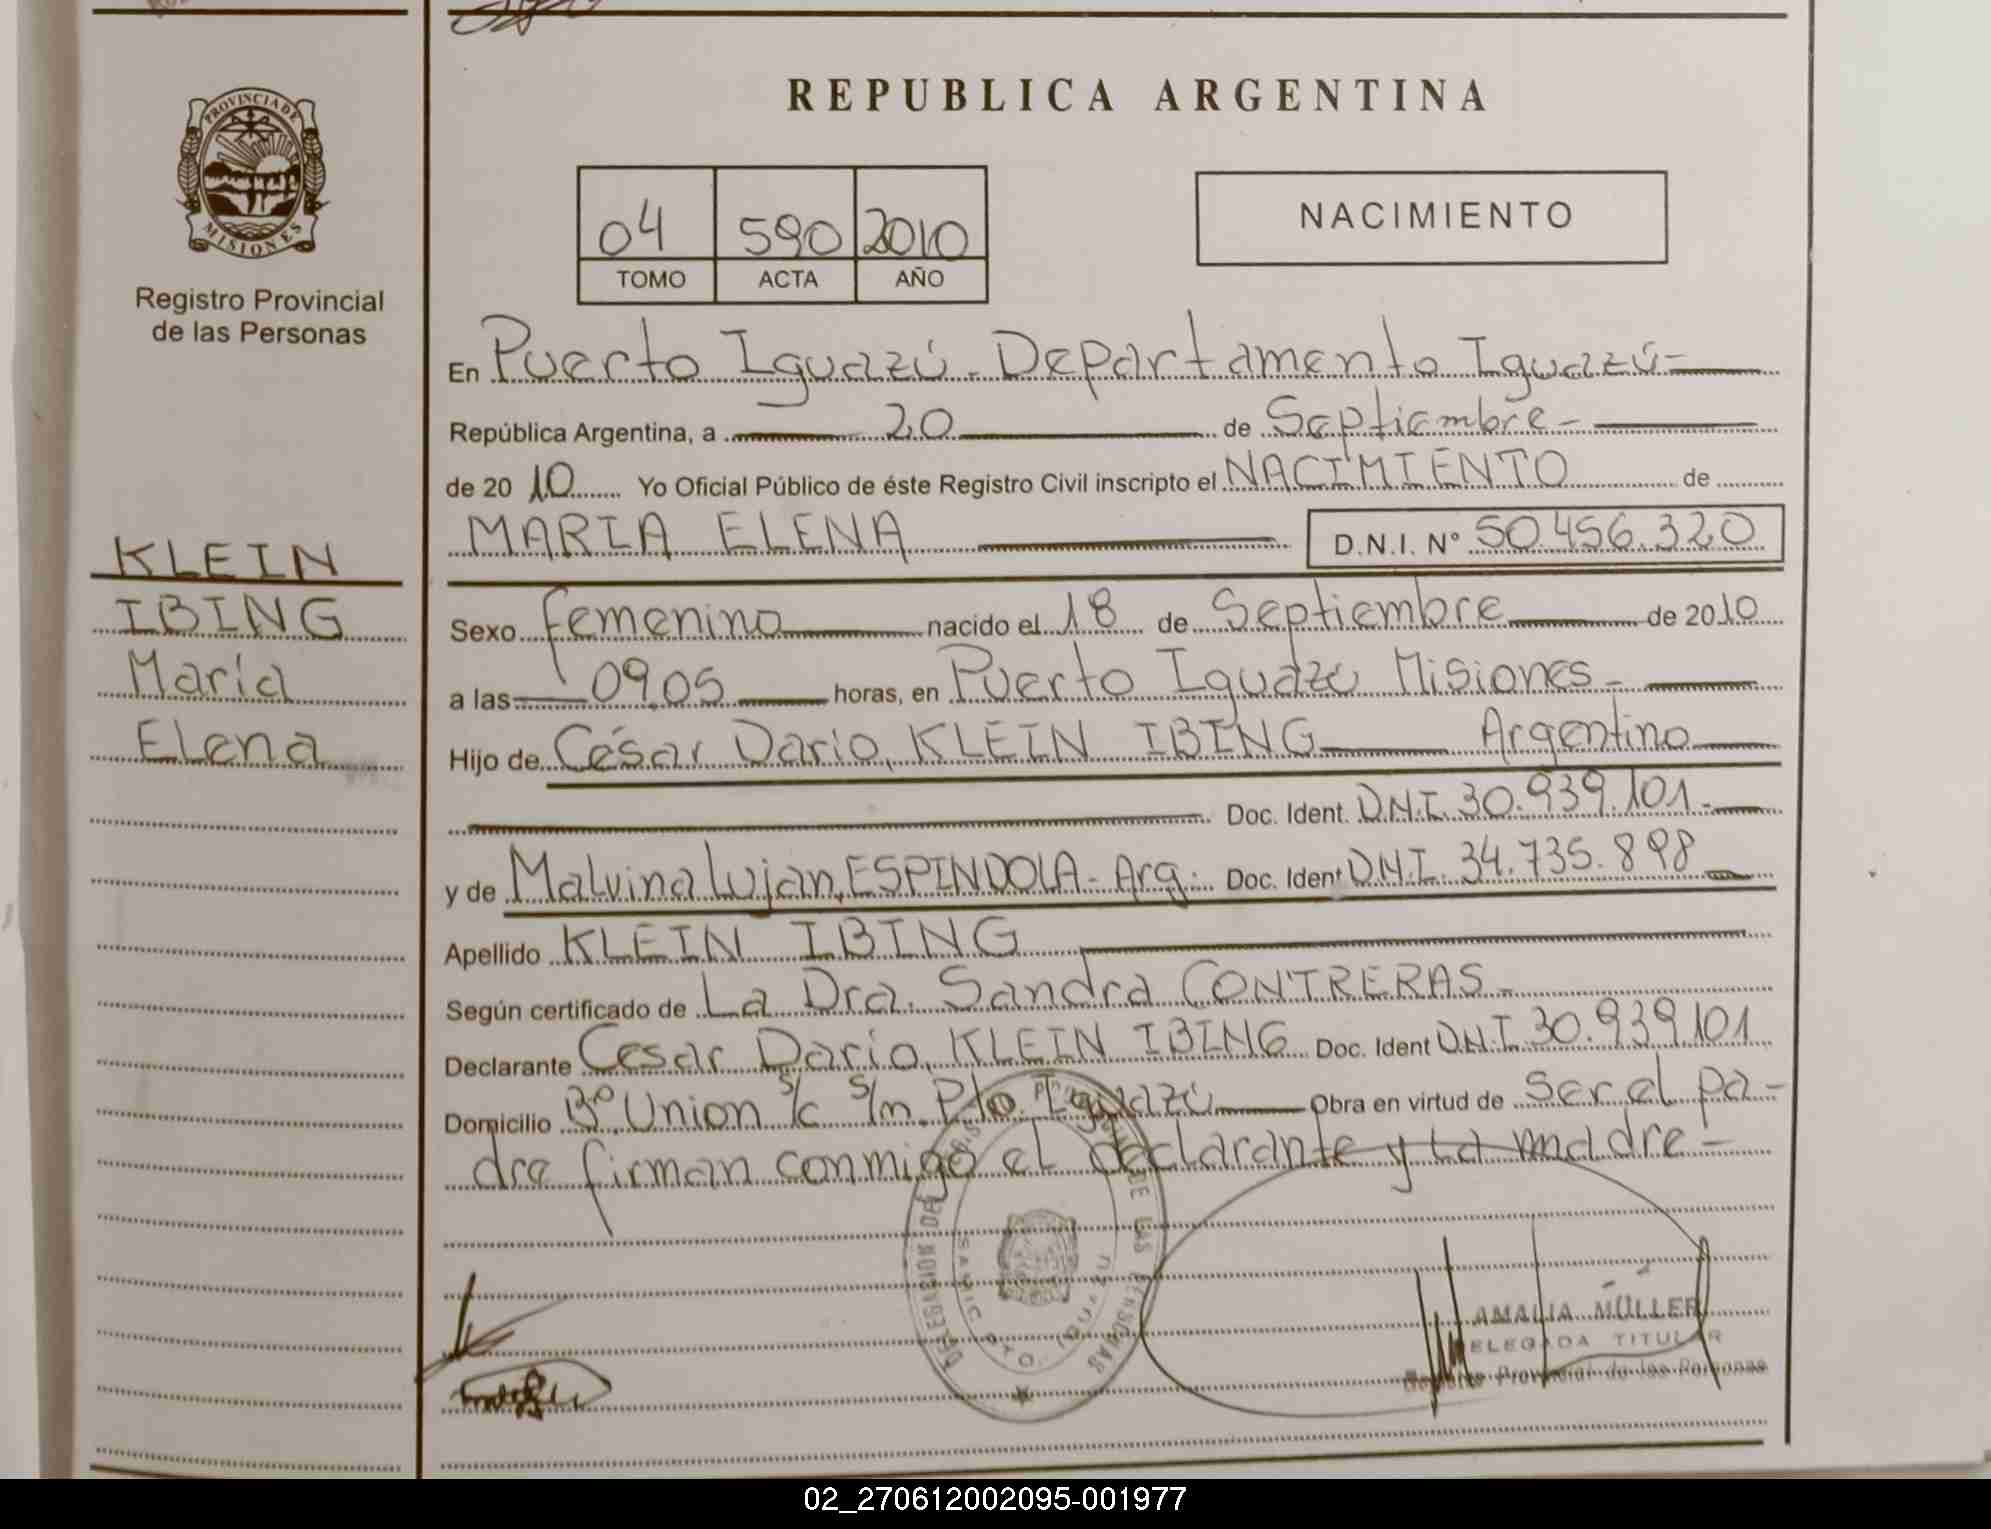 REPUBLICA ARGENTINA
PROVINCIA DE MISIONES
Registro Provincial
de las Personas
04 590 2010
TOMO ACTA AÑO
NACIMIENTO
En Puerto Iguazú. Departamento Iguazú-
República Argentina, a 20 de Septiembre-
de 2010 Yo Oficial Público de éste Registro Civil inscripto el NACIMIENTO de
MARIA ELENA D.N.I. Nº 50.456.320
KLEIN
IBING
María
Elena
Sexo femenino nacido el 18 de Septiembre de 2010
a las 09.05 horas, en Puerto Iguazú Misiones-
Hijo de César Dario, KLEIN IBING Argentino
Doc. Ident. D.N.I. 30.939.101-
y de Malvina Lujan, ESPINDOLA- Arg. Doc. Ident D.N.I. 34.735.898
Apellido KLEIN IBING
Según certificado de La Dra. Sandra CONTRERAS-
Declarante Cesar Dario, KLEIN IBING Doc. Ident D.N.I. 30.939.101
Domicilio Bº Union s/c s/n Pto. Iguazú Obra en virtud de ser el pa-
dre firman conmigo el declarante y la madre-
AMALIA MÜLLER
DELEGADA TITULAR
Registro Provincial de las Personas
02_270612002095-001977